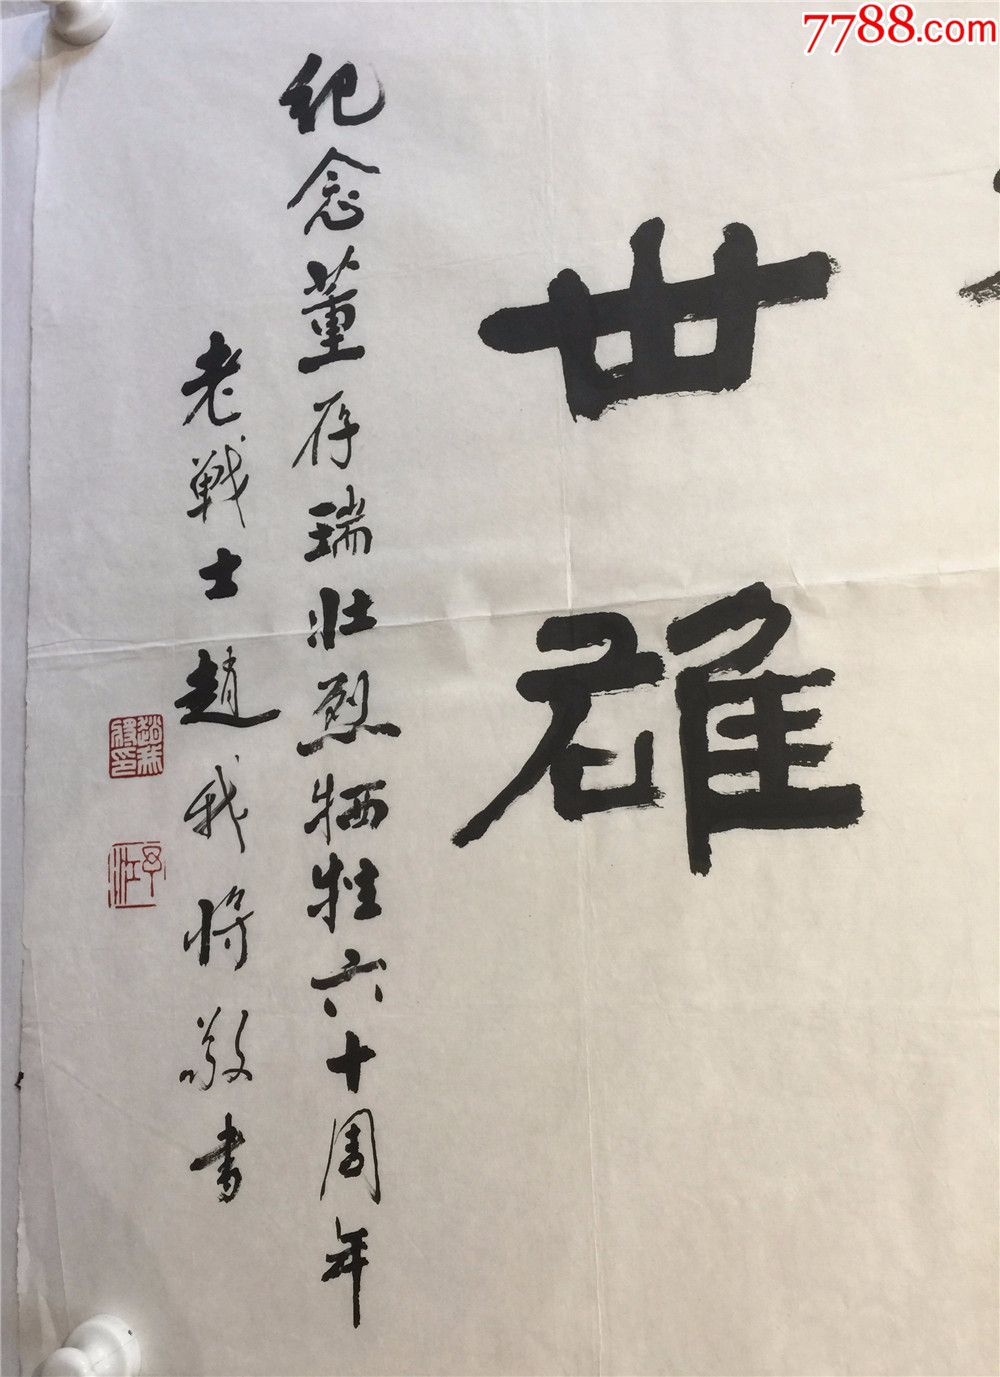 7788.com
世雄
纪念董存瑞壮烈牺牲六十周年
老戦士趙我将敬書